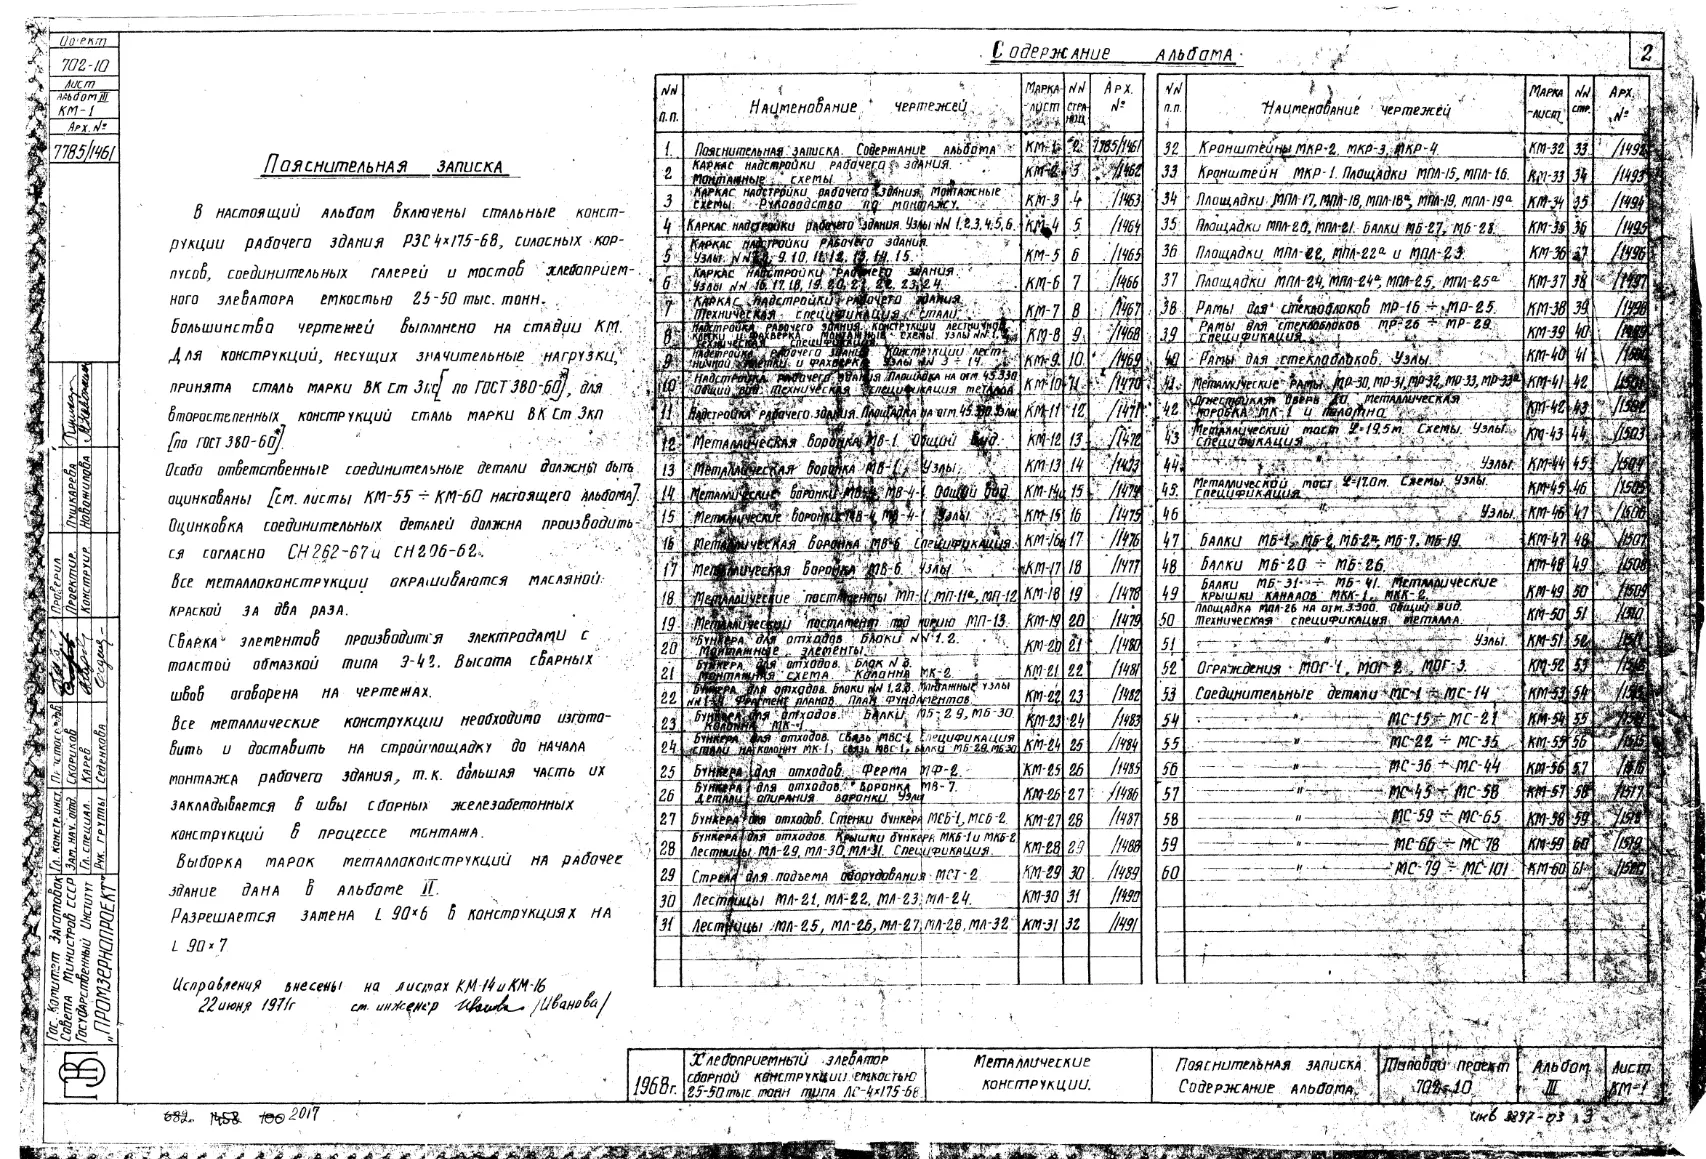 Проект
702-10
Лист
Альбом III
КМ-1
Арх. №
7785/1461
Пояснительная записка
В настоящий альбом включены стальные конст-
рукции рабочего здания РЗС 4×175-68, силосных кор-
пусов, соединительных галерей и мостов хлебоприем-
ного элеватора емкостью 25-50 тыс. тонн.
Большинство чертежей выполнено на стадии КМ.
Для конструкций, несущих значительные нагрузки,
принята сталь марки ВК Ст 3кп [по ГОСТ 380-60*], для
второстепенных конструкций сталь марки ВК Ст 3кп
[по ГОСТ 380-60*].
Особо ответственные соединительные детали должны быть
оцинкованы [см. листы КМ-55 ÷ КМ-60 настоящего альбома].
Оцинковка соединительных деталей должна производить-
ся согласно СН 262-67 и СН 206-62.
Все металлоконструкции окрашиваются масляной
краской за два раза.
Сварка элементов производится электродами с
толстой обмазкой типа Э-42. Высота сварных
швов оговорена на чертежах.
Все металлические конструкции необходимо изгото-
вить и доставить на стройплощадку до начала
монтажа рабочего здания, т.к. большая часть их
закладывается в швы сборных железобетонных
конструкций в процессе монтажа.
Выборка марок металлоконструкций на рабочее
здание дана в альбоме II.
Разрешается замена L 90×6 в конструкциях на
L 90×7
Исправления внесены на листах КМ-14 и КМ-16
22 июня 1971г ст. инженер /Иванова/
Содержание альбома
2
NN п.п. Наименование чертежей Марка-лист NN страниц Арх. №
1 Пояснительная записка. Содержание альбома КМ-1 2 7785/1461
2 Каркас надстройки рабочего здания. Монтажные схемы КМ-2 3 /1462
3 Каркас надстройки рабочего здания. Монтажные схемы. Руководство по монтажу. КМ-3 4 /1463
4 Каркас надстройки рабочего здания. Узлы NN 1,2,3,4,5,6. КМ-4 5 /1464
5 Каркас надстройки рабочего здания. Узлы NN 9,10,11,12,13,14,15. КМ-5 6 /1465
6 Каркас надстройки рабочего здания. Узлы NN 16,17,18,19,20,21,22,23,24. КМ-6 7 /1466
7 Каркас надстройки рабочего здания. Техническая спецификация стали. КМ-7 8 /1467
8 Надстройка рабочего здания. Конструкции лестничной клетки и фахверка. Монтажные схемы. Узлы Техническая спецификация КМ-8 9 /1468
9 Надстройка рабочего здания. Конструкции лестничной клетки и фахверка. Узлы NN 3 ÷ 14. КМ-9 10 /1469
10 Надстройка рабочего здания. Площадка на отм 45.330 Общий вид. Техническая спецификация металла КМ-10 11 /1470
11 Надстройка рабочего здания. Площадка на отм. Узлы КМ-11 12 /1471
12 Металлическая воронка МВ-1. Общий вид. КМ-12 13 /1472
13 Металлическая воронка МВ-1. Узлы. КМ-13 14 /1473
14 Металлические воронки МВ-4. Общий вид. КМ-14 15 /1474
15 Металлические воронки МВ-4. Узлы. КМ-15 16 /1475
16 Металлическая воронка МВ-6. Спецификация. КМ-16 17 /1476
17 Металлическая воронка МВ-6. Узлы. КМ-17 18 /1477
18 Металлические постаменты МП-11, МП-11ª, МП-12 КМ-18 19 /1478
19 Металлический постамент под норию МП-13. КМ-19 20 /1479
20 Бункера для отходов. Блоки NN 1, 2. Монтажные элементы. КМ-20 21 /1480
21 Бункера для отходов. Блок N 3. Монтажная схема. Колонна МК-2. КМ-21 22 /1481
22 Бункера для отходов. Блоки NN 1,2,3. Монтажные узлы Фрагмент планов. План фундаментов. КМ-22 23 /1482
23 Бункера для отходов. Балки МБ-29, МБ-30. Колонна МК-1 КМ-23 24 /1483
24 Бункера для отходов. Связь МВС-1 Спецификация стали на колонну МК-1, связь МВС-1, балки МБ-29, МБ-30 КМ-24 25 /1484
25 Бункера для отходов. Ферма МФ-2. КМ-25 26 /1485
26 Бункера для отходов. Воронка МВ-7. Детали опирания воронки. Узлы КМ-26 27 /1486
27 Бункера для отходов. Стенки бункера МСБ-1, МСБ-2. КМ-27 28 /1487
28 Бункера для отходов. Крышки бункера МКБ-1 и МКБ-2 Лестницы МЛ-29, МЛ-30, МЛ-31. Спецификация. КМ-28 29 /1488
29 Стрела для подъема оборудования МСТ-2 КМ-29 30 /1489
30 Лестницы МЛ-21, МЛ-22, МЛ-23, МЛ-24. КМ-30 31 /1490
31 Лестницы МЛ-25, МЛ-26, МЛ-27, МЛ-28, МЛ-32 КМ-31 32 /1491
NN п.п. Наименование чертежей Марка-лист NN стр. Арх. №
32 Кронштейны МКР-2, МКР-3, МКР-4. КМ-32 33 /1492
33 Кронштейн МКР-1. Площадки МПЛ-15, МПЛ-16. КМ-33 34 /1493
34 Площадки МПЛ-17, МПЛ-18, МПЛ-18ª, МПЛ-19, МПЛ-19ª КМ-34 35 /1494
35 Площадки МПЛ-20, МПЛ-21. Балки МБ-27, МБ-28. КМ-35 36 /1495
36 Площадки МПЛ-22, МПЛ-22ª и МПЛ-23. КМ-36 37 /1496
37 Площадки МПЛ-24, МПЛ-24ª, МПЛ-25, МПЛ-25ª КМ-37 38 /1497
38 Рамы для стеклоблоков МР-16 ÷ МР-25. КМ-38 39 /1498
39 Рамы для стеклоблоков МР-26 ÷ МР-29. Спецификация. КМ-39 40 /1499
40 Рамы для стеклоблоков. Узлы. КМ-40 41 /1500
41 Металлические рамы МР-30, МР-31, МР-32, МР-33, МР-33ª КМ-41 42 /1501
42 Огнестойкая дверь металлическая коробка МК-1 и полотно КМ-42 43 /1502
43 Металлический мост L=19.5м. Схемы. Узлы. Спецификация КМ-43 44 /1503
44 " Узлы. КМ-44 45 /1504
45 Металлический мост L=17.0м. Схемы. Узлы. Спецификация КМ-45 46 /1505
46 " Узлы. КМ-46 47 /1506
47 Балки МБ-1, МБ-2, МБ-2ª, МБ-7, МБ-19. КМ-47 48 /1507
48 Балки МБ-20 ÷ МБ-26. КМ-48 49 /1508
49 Балки МБ-31 ÷ МБ-41. Металлические крышки каналов МКК-1, МКК-2. КМ-49 50 /1509
50 Площадка МПЛ-26 на отм. 3.300. Общий вид. Техническая спецификация металла. КМ-50 51 /1510
51 " Узлы. КМ-51 52
52 Ограждения МОГ-1, МОГ-2, МОГ-3. КМ-52 53
53 Соединительные детали МС-1 ÷ МС-14 КМ-53 54
54 " МС-15 ÷ МС-21 КМ-54 55
55 " МС-22 ÷ МС-35 КМ-55 56
56 " МС-36 ÷ МС-44 КМ-56 57
57 " МС-45 ÷ МС-58 КМ-57 58 /1517
58 " МС-59 ÷ МС-65 КМ-58 59
59 " МС-66 ÷ МС-78 КМ-59 60 /1519
60 " МС-79 ÷ МС-101 КМ-60 61 /1520
Гос. комитет заготовок
Совета Министров СССР
Государственный институт
„ПРОМЗЕРНОПРОЕКТ"
Гл. констр. инст.
Зам. нач. отд. Скориков
Гл. специал. Карев
Рук. группы Селенкова
Проверил Птшкарева
Проектир.
Конструир. Новожилова
1968г.
Хлебоприемный элеватор
сборной конструкции емкостью
25-50 тыс. тонн типа ЛС-4×175-68
Металлические
конструкции.
Пояснительная записка
Содержание альбома.
Типовой проект
702-10
Альбом
III
Лист
КМ-1
2017
инв 3897-03 3